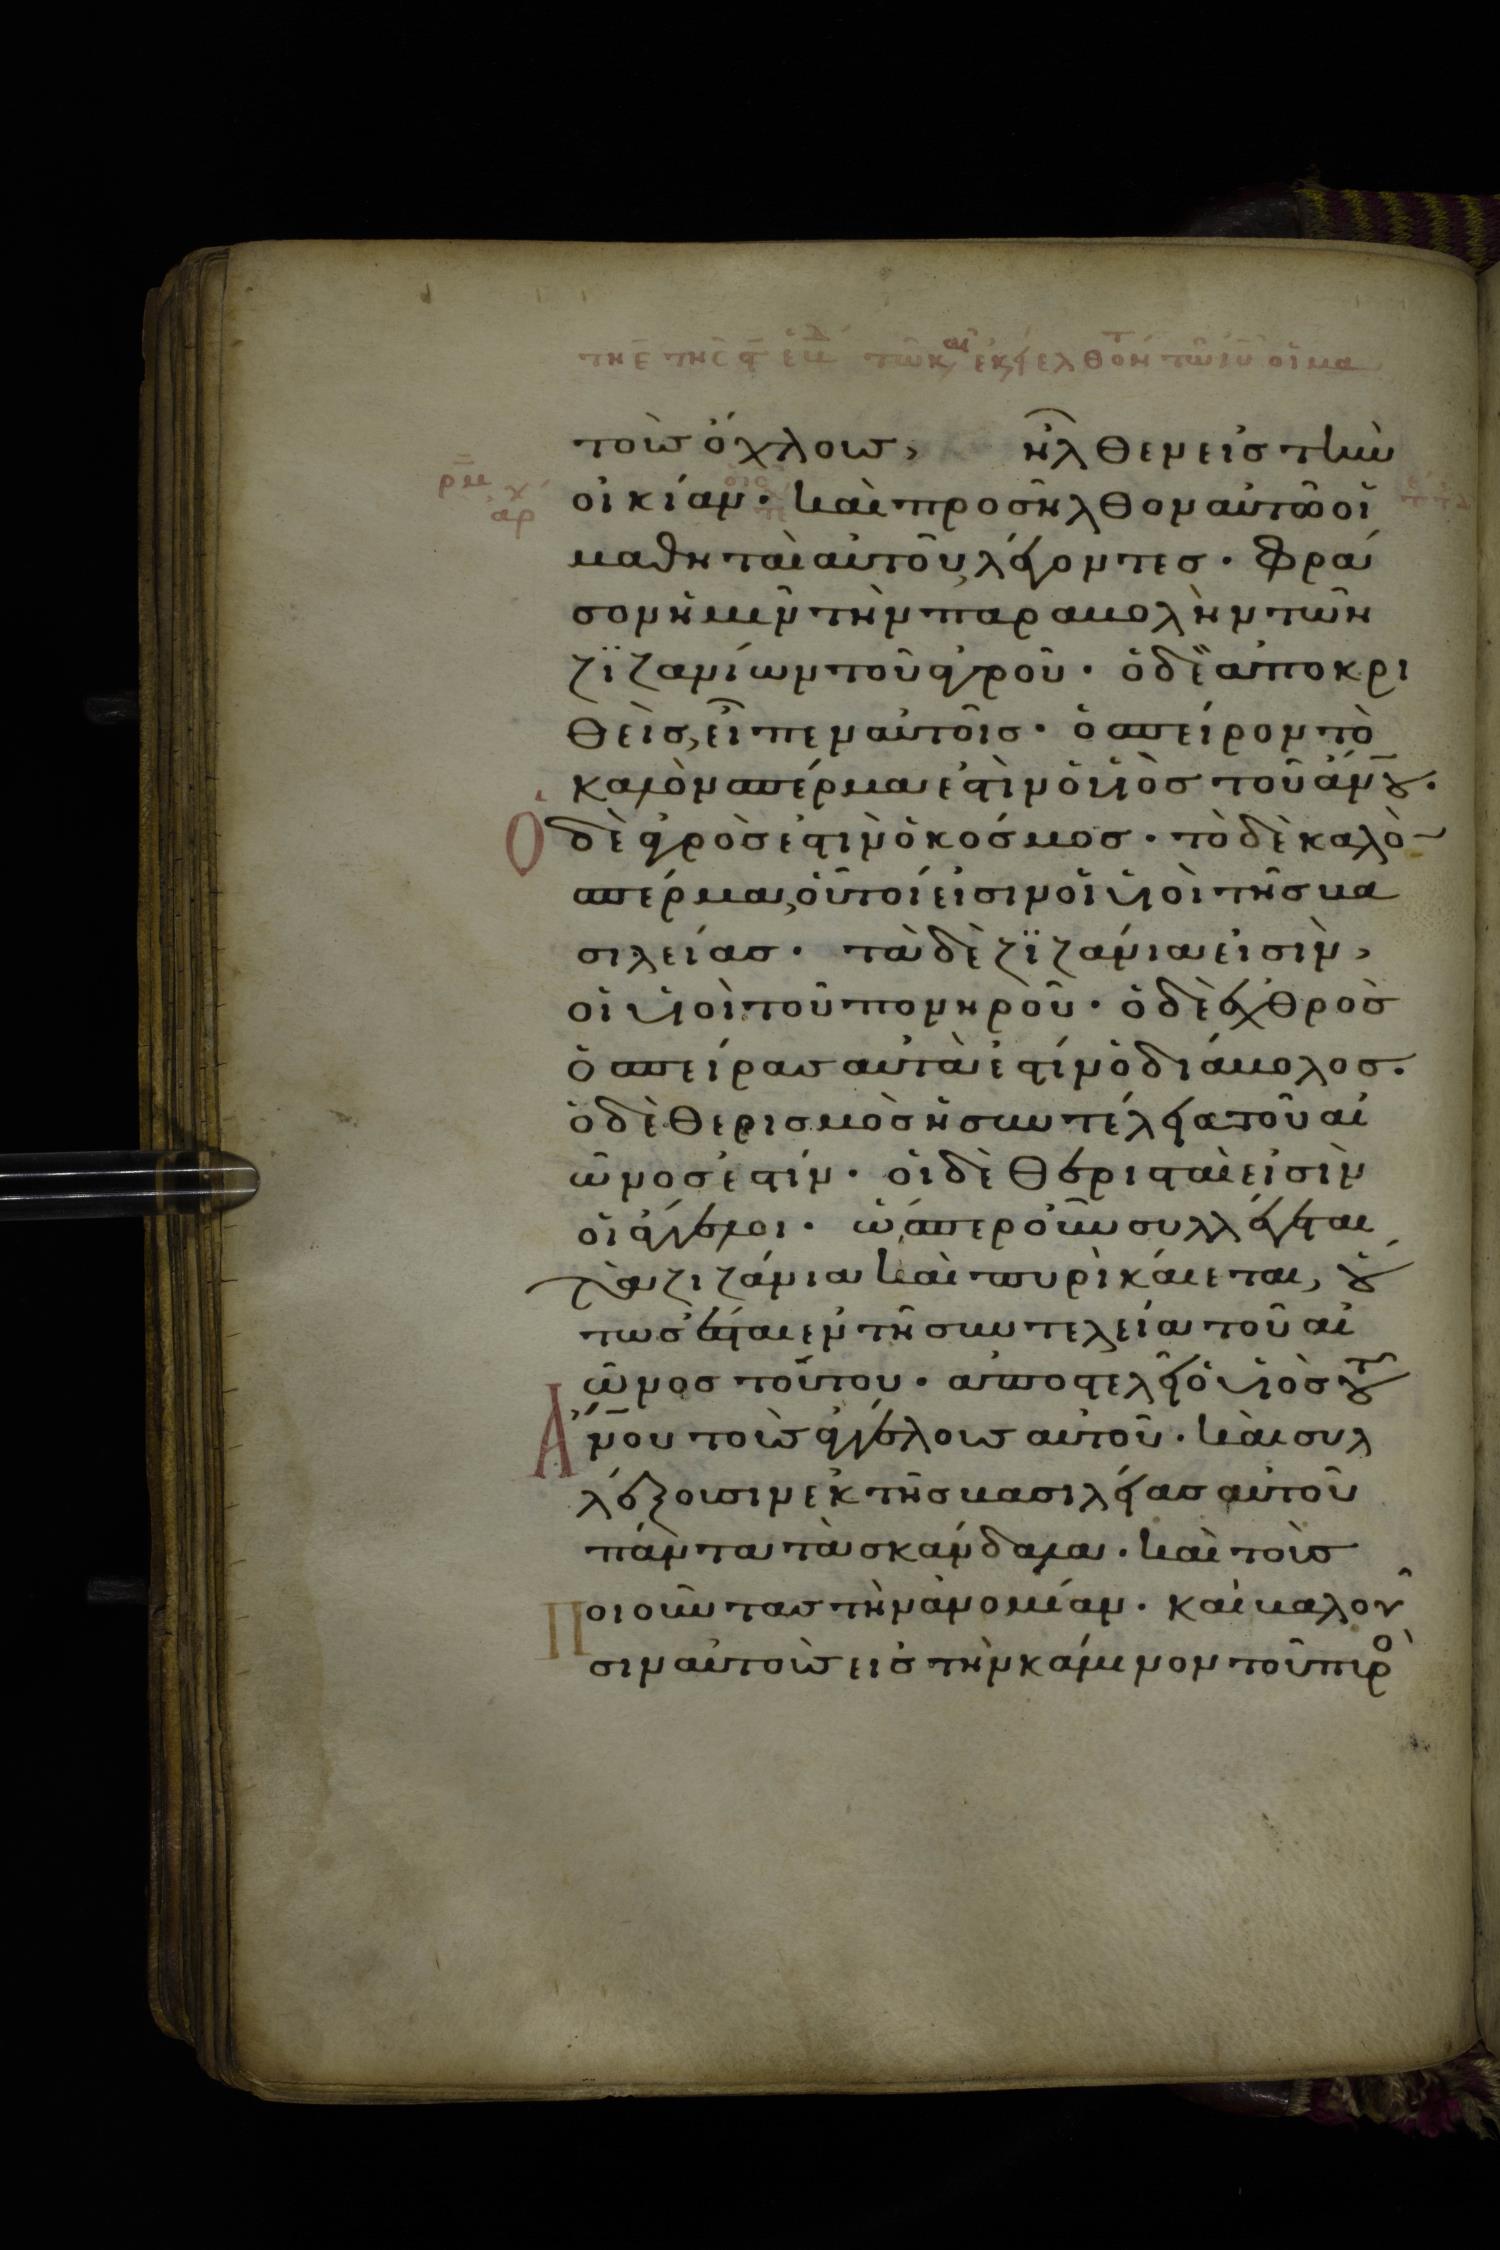 τοὺς ὄχλους, ἦλθεν εἰς τὴν
οἰκίαν· καὶ προσῆλθον αὐτῶ οἱ
μαθηταὶ αὐτοῦ, λέγοντες· φρά
σον ἡμῖν τὴν παραβολὴν τῶν
ζϊζανίων τοῦ ἀγροῦ· ὁ δὲ ἀποκρι
θεὶς, εἶπεν αὐτοῖς· ὁ σπείρον τὸ
καλὸν σπέρμα ἐστὶν ὁ υἱὸς τοῦ ἀν̅ου·
Ὁ δὲ ἀγρὸς ἐστιν ὁ κόσμος· τὸ δὲ καλὸ̅
σπέρμα, οὗτοί εἰσιν οἱ υἱοὶ τῆς βα
σιλείας· τὰ δὲ ζϊζάνια εἰσὶν,
οἱ υἱοὶ τοῦ πονηροῦ· ὁ δὲ ἐχθρὸς
ὁ σπείρας αὐτὰ ἐστίν ὁ διάβολος·
ὁ δὲ θερισμὸς ἡ συντέλεια τοῦ αἰ
ῶνος ἐστίν· οἱ δὲ θερισταὶ εἰσὶν
οἱ ἄγγελοι· ὥσπερ οὖν συλλέγεται
τὰ ζιζάνια καὶ πυρὶ κάιεται, οὕ
τως ἔσται ἐν τῆ συντελεία τοῦ αἰ
ῶνος τούτου· ἀποστελεῖ ὁ υἱὸς τοῦ
Ἀν̅ου τοὺς ἀγγέλους αὐτοῦ· καὶ συλ
λέξουσιν ἐκ τῆς βασιλείας αὐτοῦ
πάντα τὰ σκάνδαλα· καὶ τοὺς
Ποιοῦντας τὴν ἀνομίαν· καὶ βαλοῦ
σιν αὐτοὺς εἰς τὴν κάμινον τοῦ πυρὸ